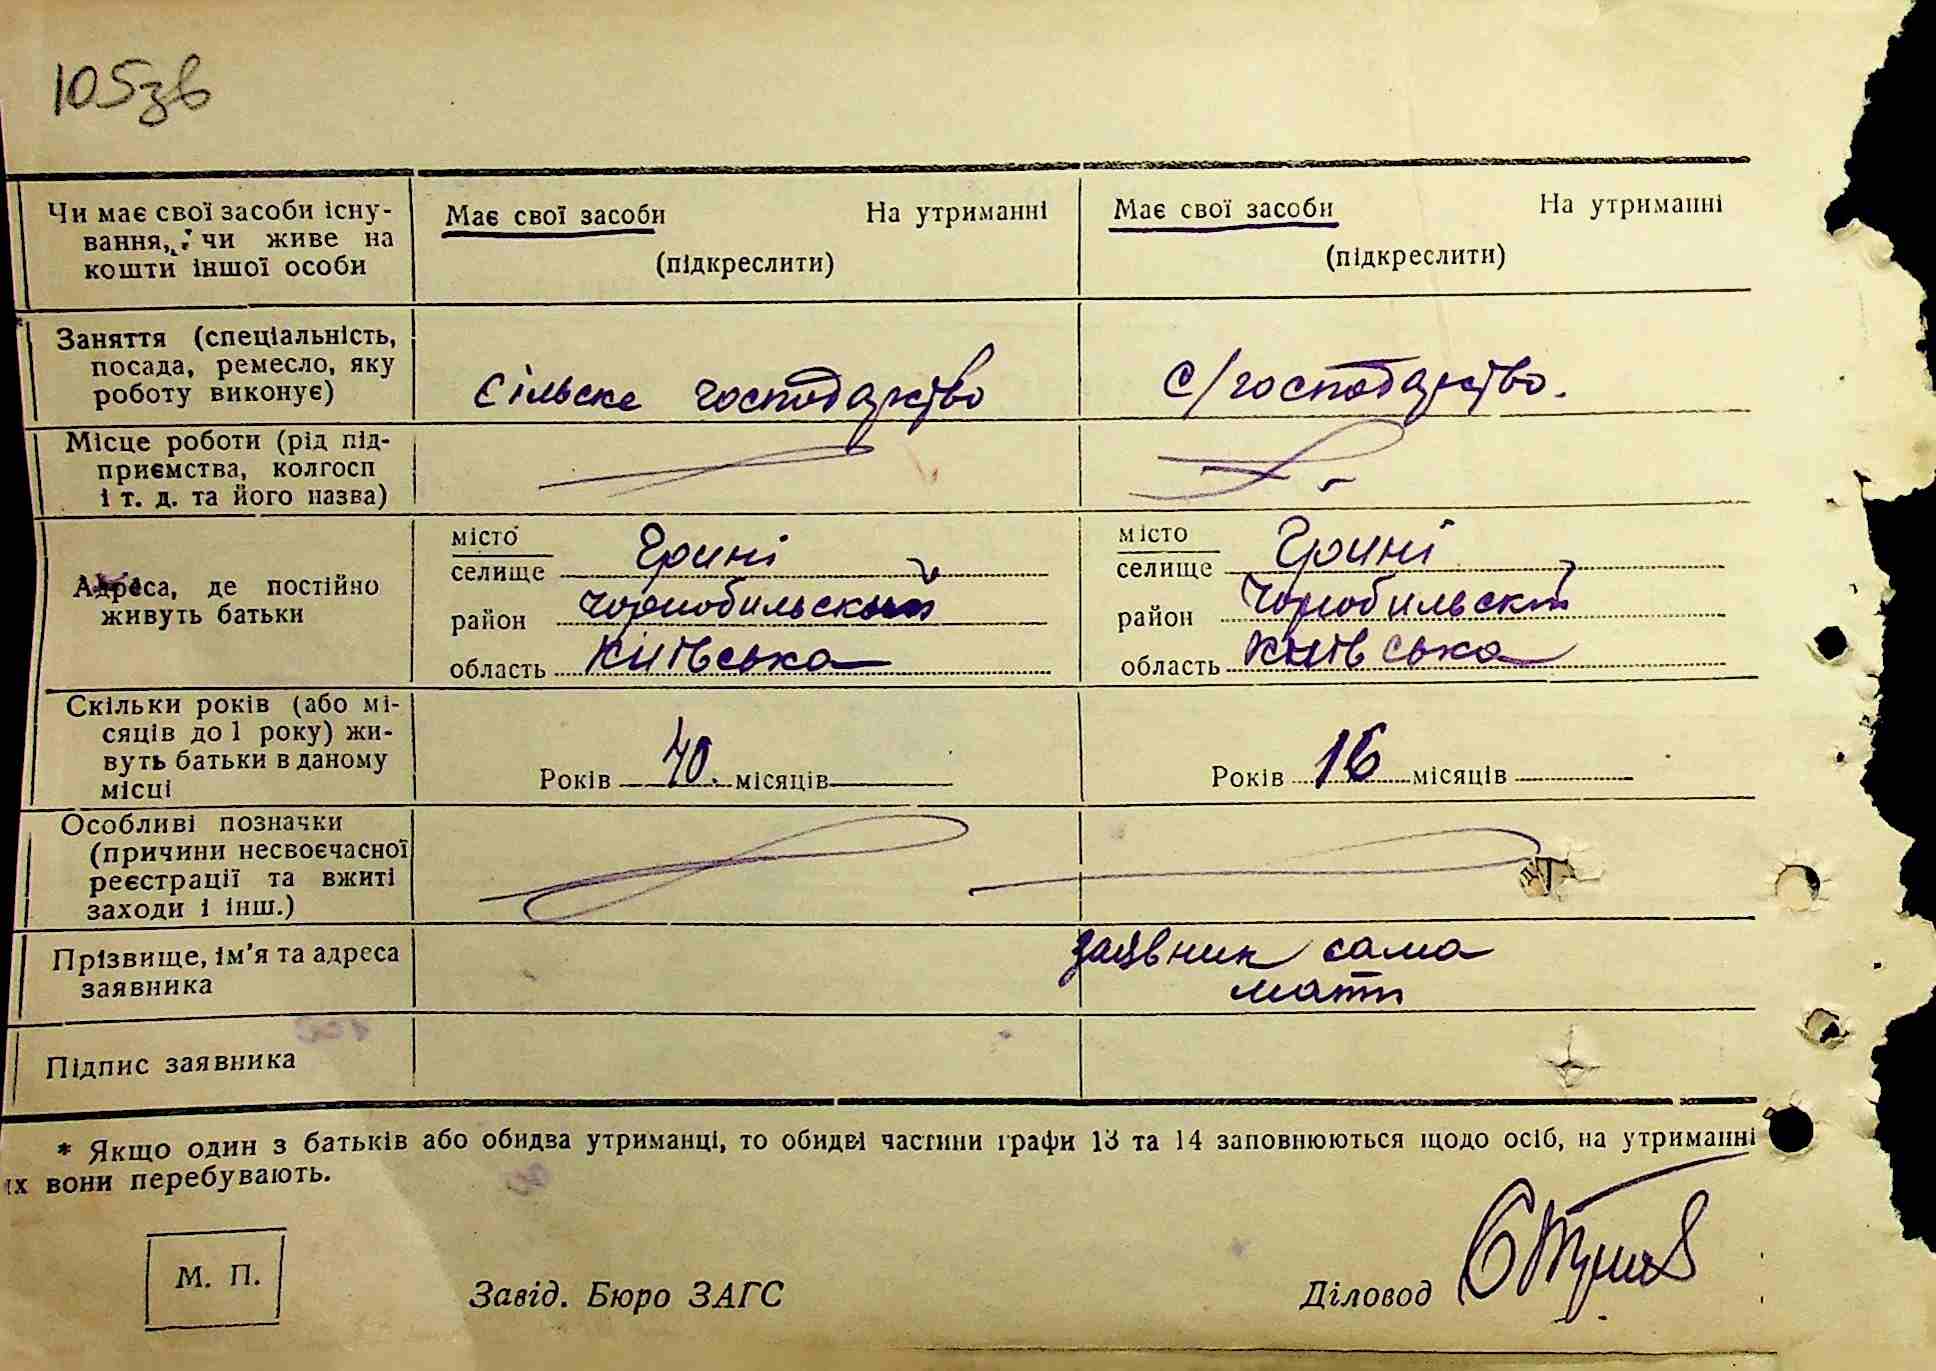 105зв
Чи має свої засоби існу- Має свої засоби На утриманні Має свої засоби На утриманні
вання, чи живе на (підкреслити) (підкреслити)
кошти іншої особи
Заняття (спеціальність,
посада, ремесло, яку сільське господарство с/господарство.
роботу виконує)
Місце роботи (рід під-
приємства, колгосп
і т. д. та його назва)
місто місто
селище Грині селище Грині
Адреса, де постійно район Чорнобильский район Чорнобильскій
живуть батьки область Київська область Київська
Скільки років (або мі-
сяців до 1 року) жи-
вуть батьки в даному Років 40. місяців Років 16 місяців
місці
Особливі позначки
(причини несвоєчасної
реєстрації та вжиті
заходи і інш.)
Прізвище, ім'я та адреса заявник сама
заявника мати
Підпис заявника
* Якщо один з батьків або обидва утриманці, то обидві частини графи 13 та 14 заповнюються щодо осіб, на утриманні
их вони перебувають.
М. П.
Завід. Бюро ЗАГС Діловод